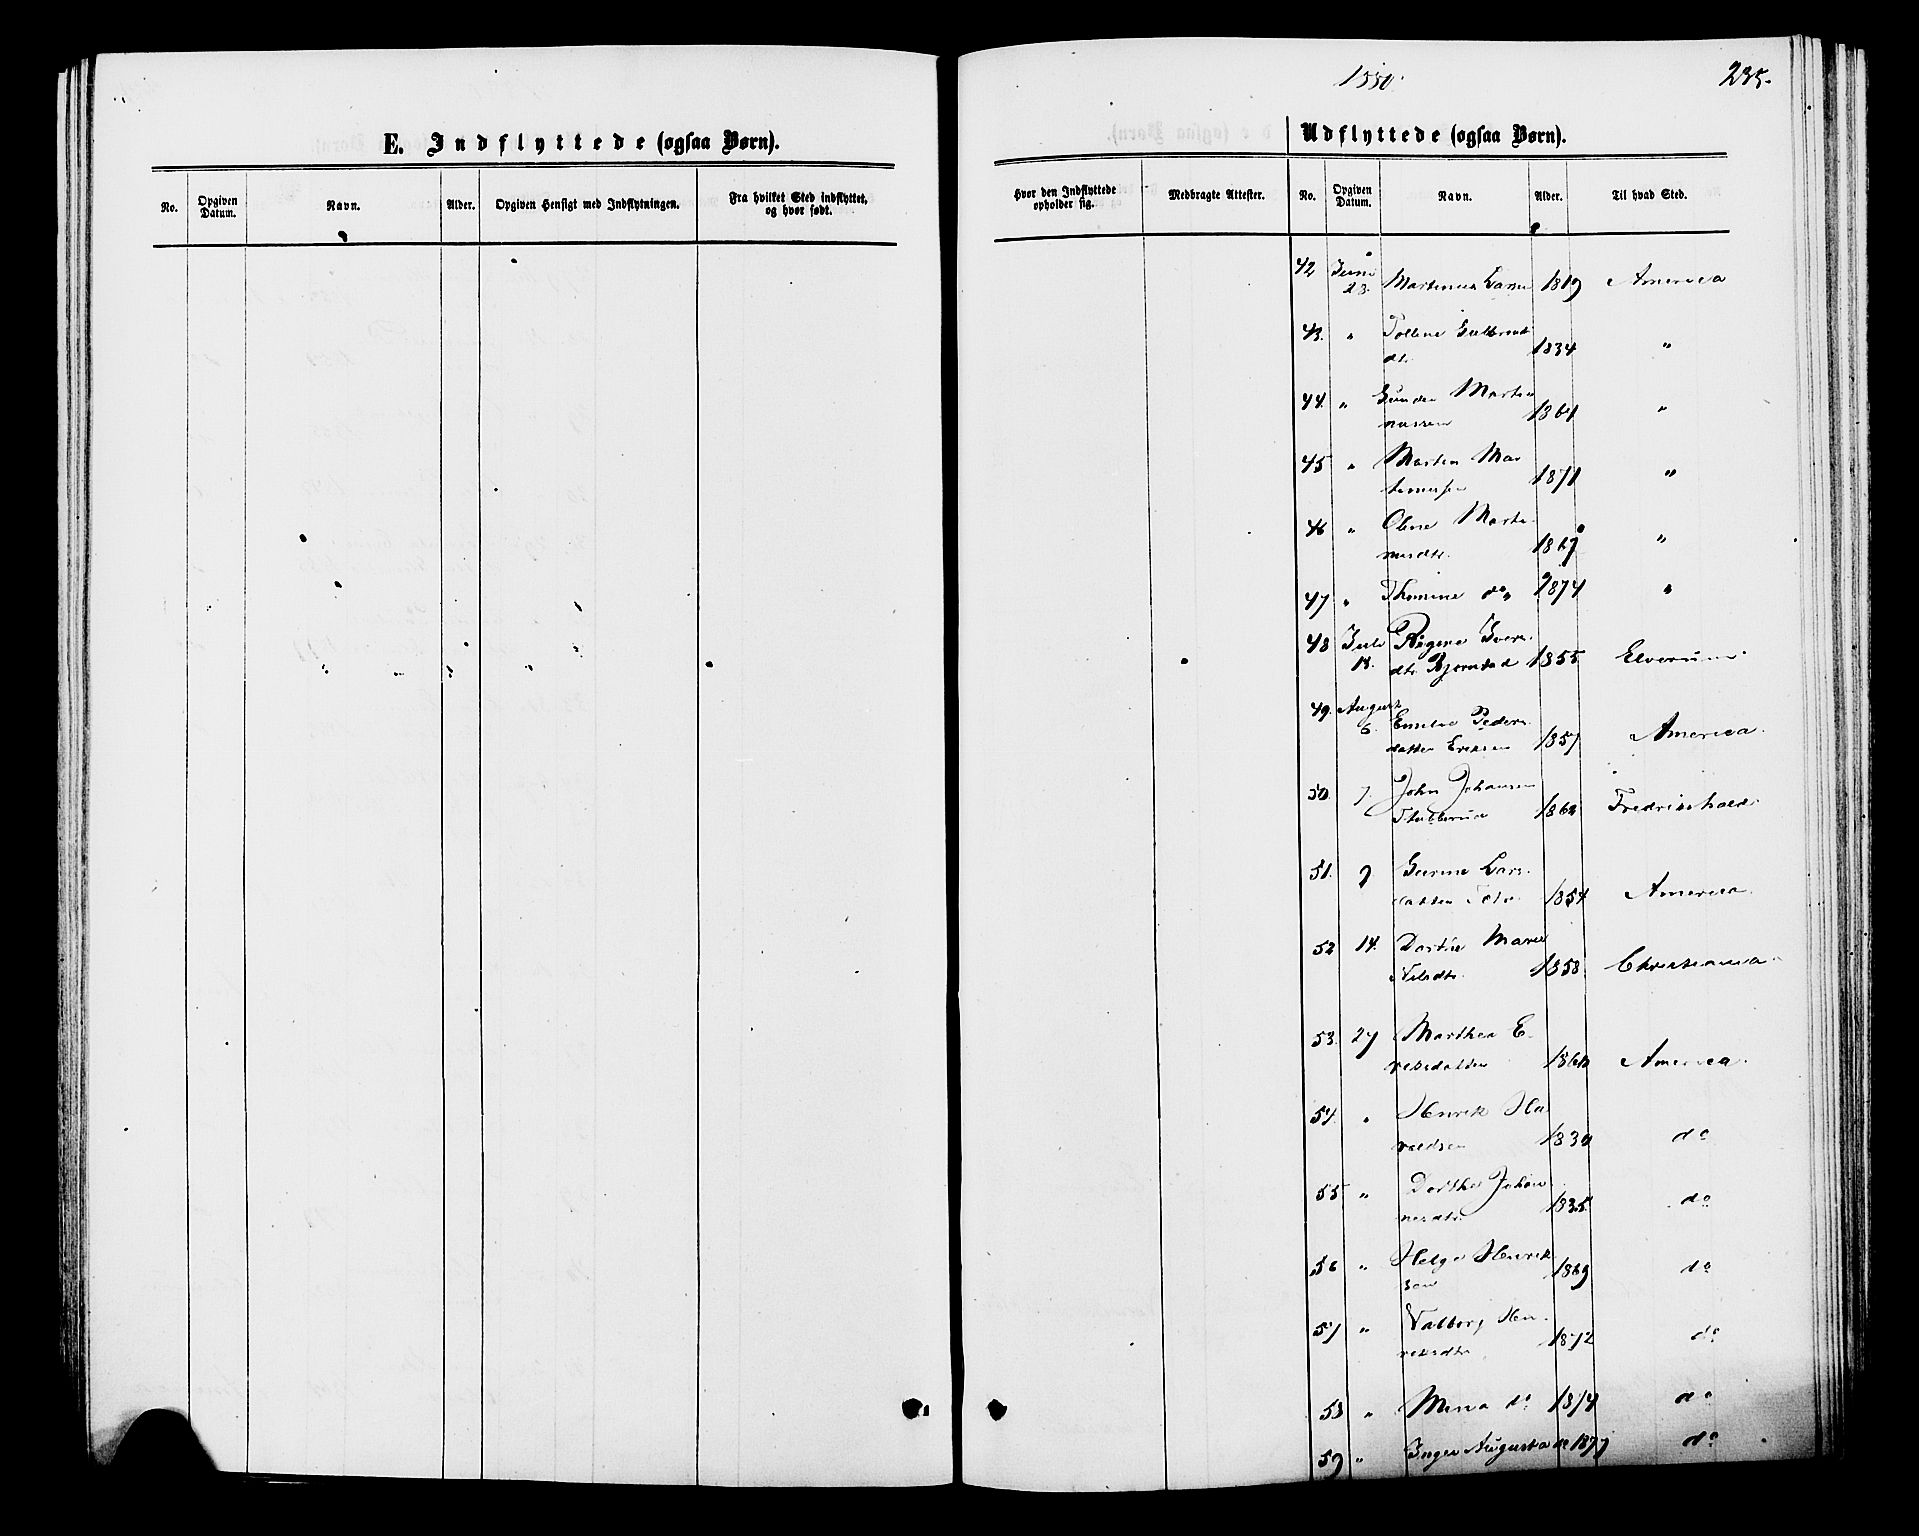 1880.
235.
E. Indflyttede (ogsaa Børn).
No. Opgiven Datum. Navn. Alder. Opgiven Hensigt med Indflytningen. Fra hvilket Sted indflyttet, og hvor født.
Hvor den Indflyttede opholder sig. Medbragte Attester.
Udflyttede (ogsaa Børn).
No. Opgiven Datum. Navn. Alder. Til hvad Sted.
42 Juni 23. Martinus 1819 America
43. " Gulbrands
dtr. 1834 "
44. " Marti
nussen 1864 "
45 " Martin Mar
tinussen 1871 "
46 " Oline Marti
nusdtr. 1867 "
47 " do 1874 "
48 Juli 13. Ivers
dtr. Bjørnstad 1855 Elverum.
49. August 6. Emilie Peders
datter Eriksen 1857 America.
50. 7. John Johansen
1862 Fredrikshald.
51. 9 Gurine Lars
datter 1854 America.
52 14. Dorthe Marie
Nilsdtr. 1858. Christiania.
53. 27 Marthea E
riksdatter America.
54. " Henrik Ha
raldsen 1830 do
55 " Dorthe Johan
nesdtr. 1835. do
56 " Helge Henrik
sen 1869 do
57 " Valborg Hen
riksdtr 1872 do
58 " do 1874 do
59 " Inger Augusta do 1877 do